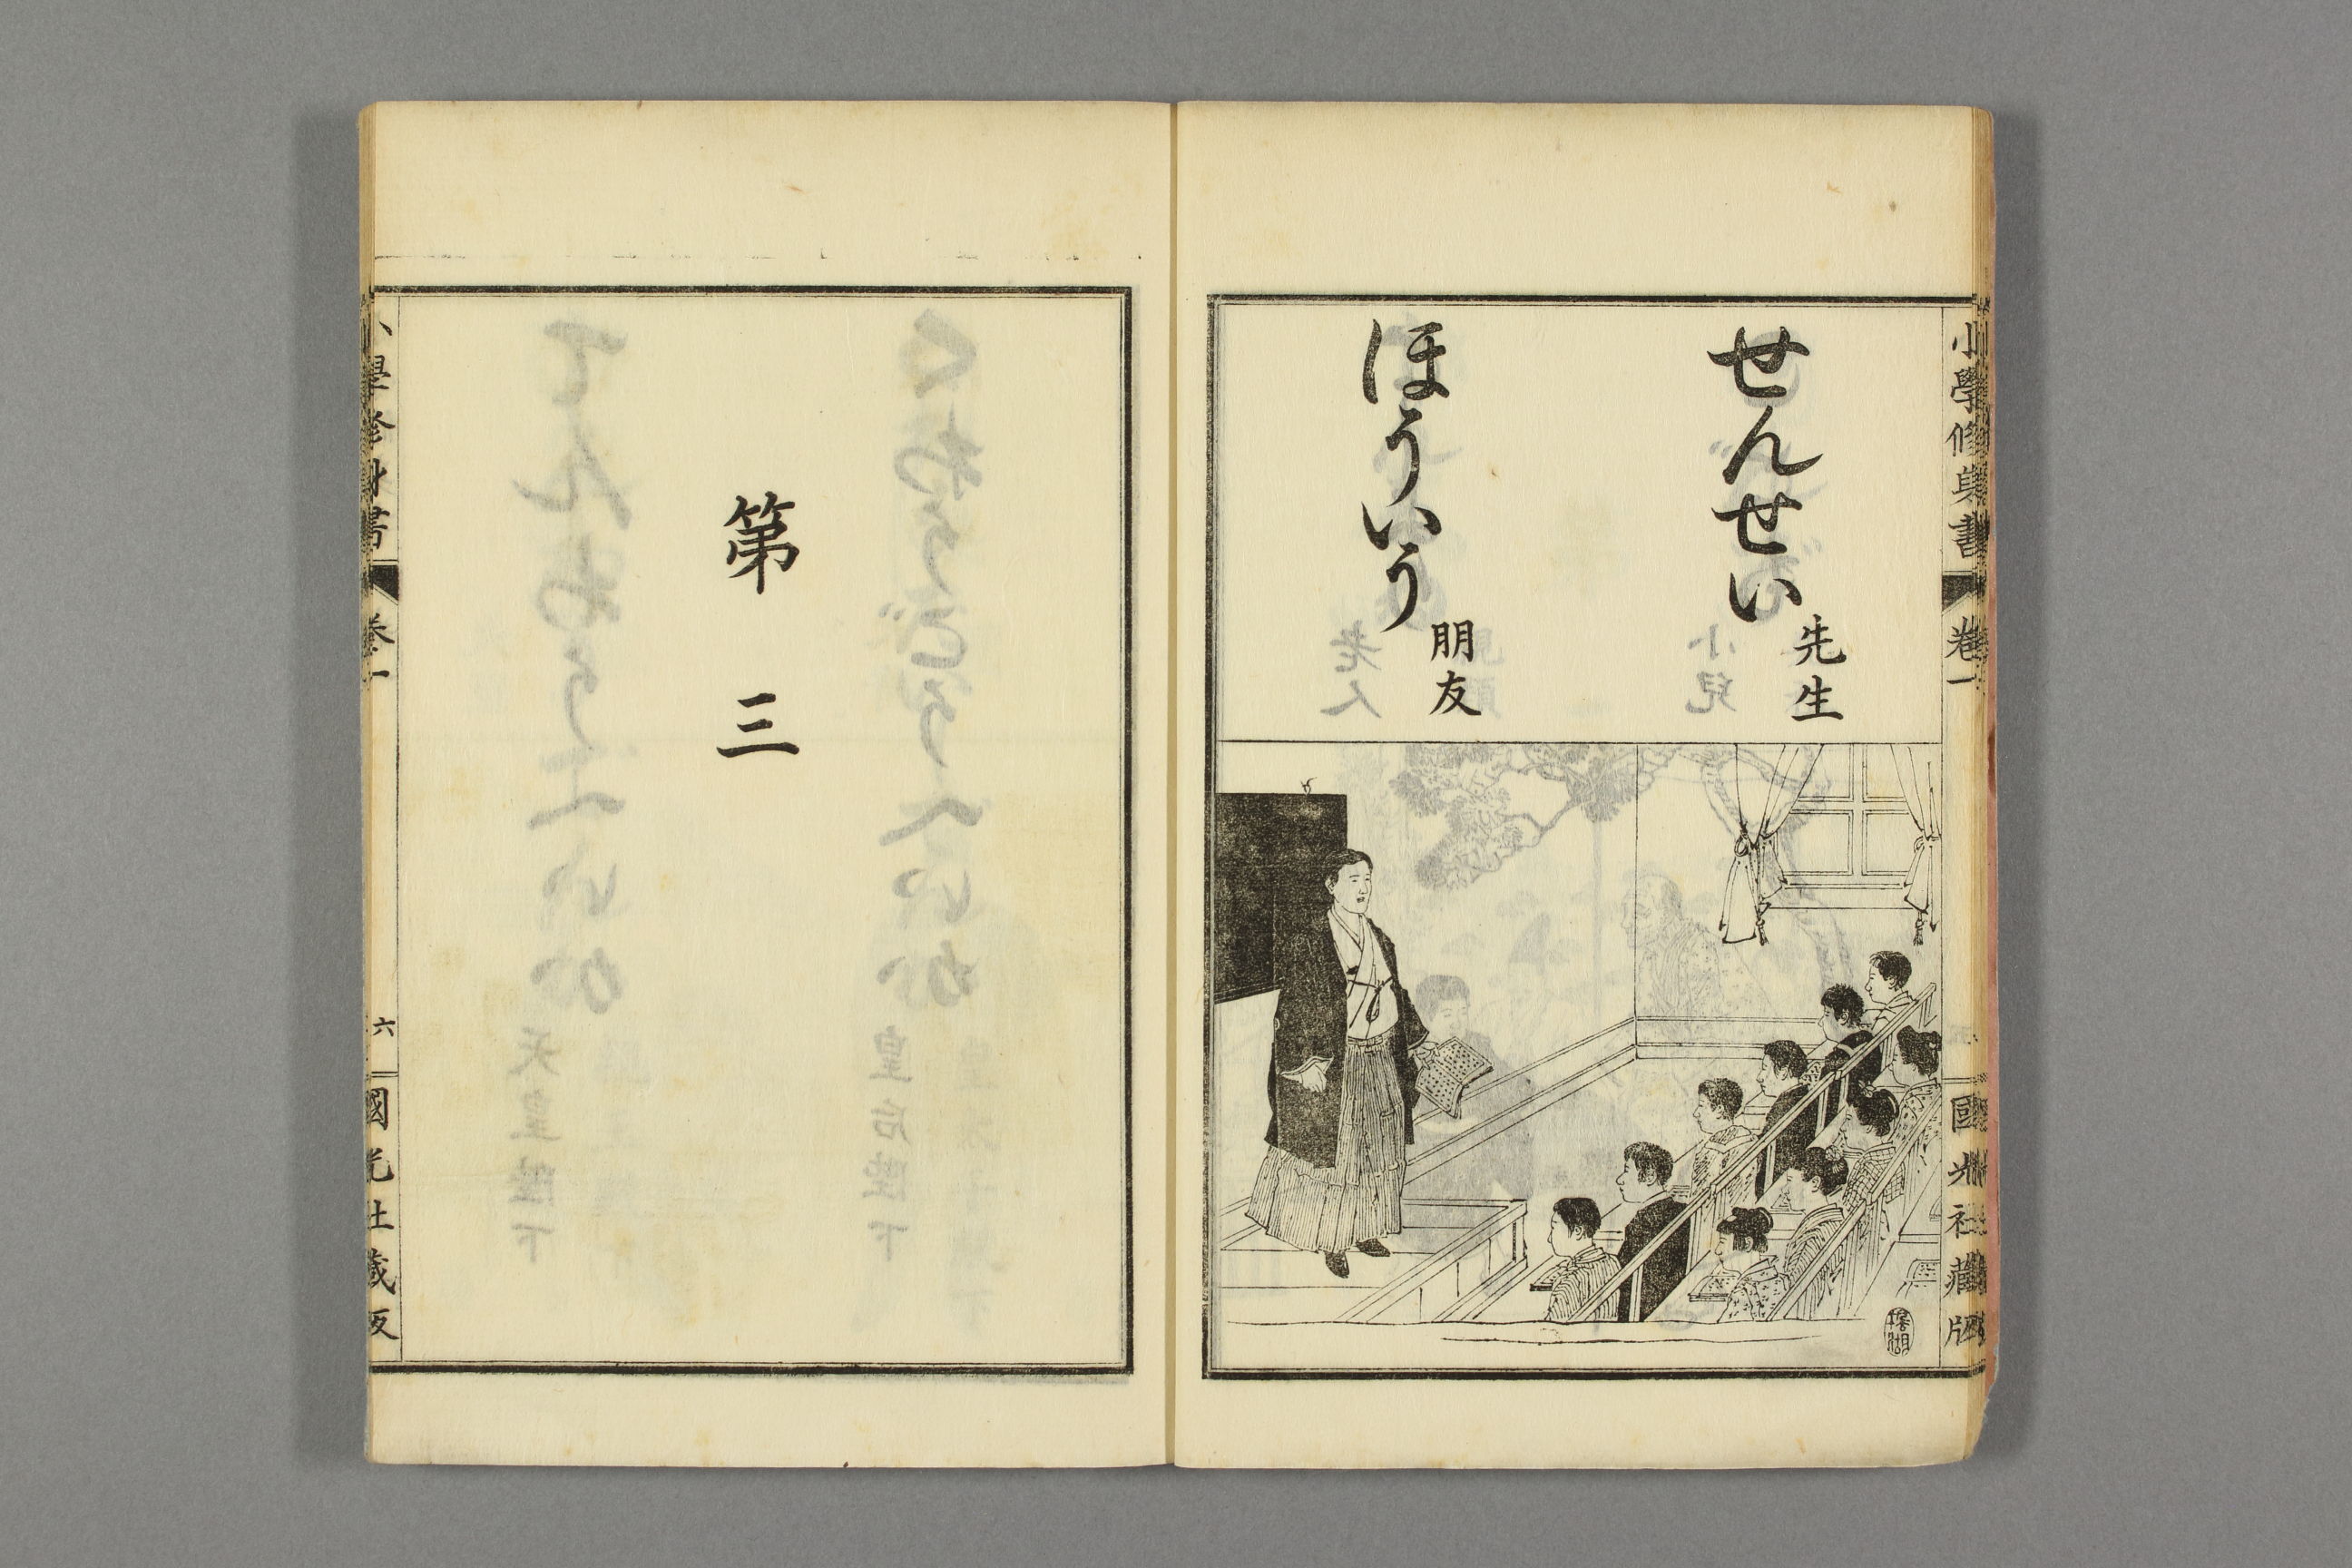 小學修身書 卷一 國光社藏版
せんせい
先生
ほういう
朋友
第三
小學修身書 卷一 六 國光社藏版